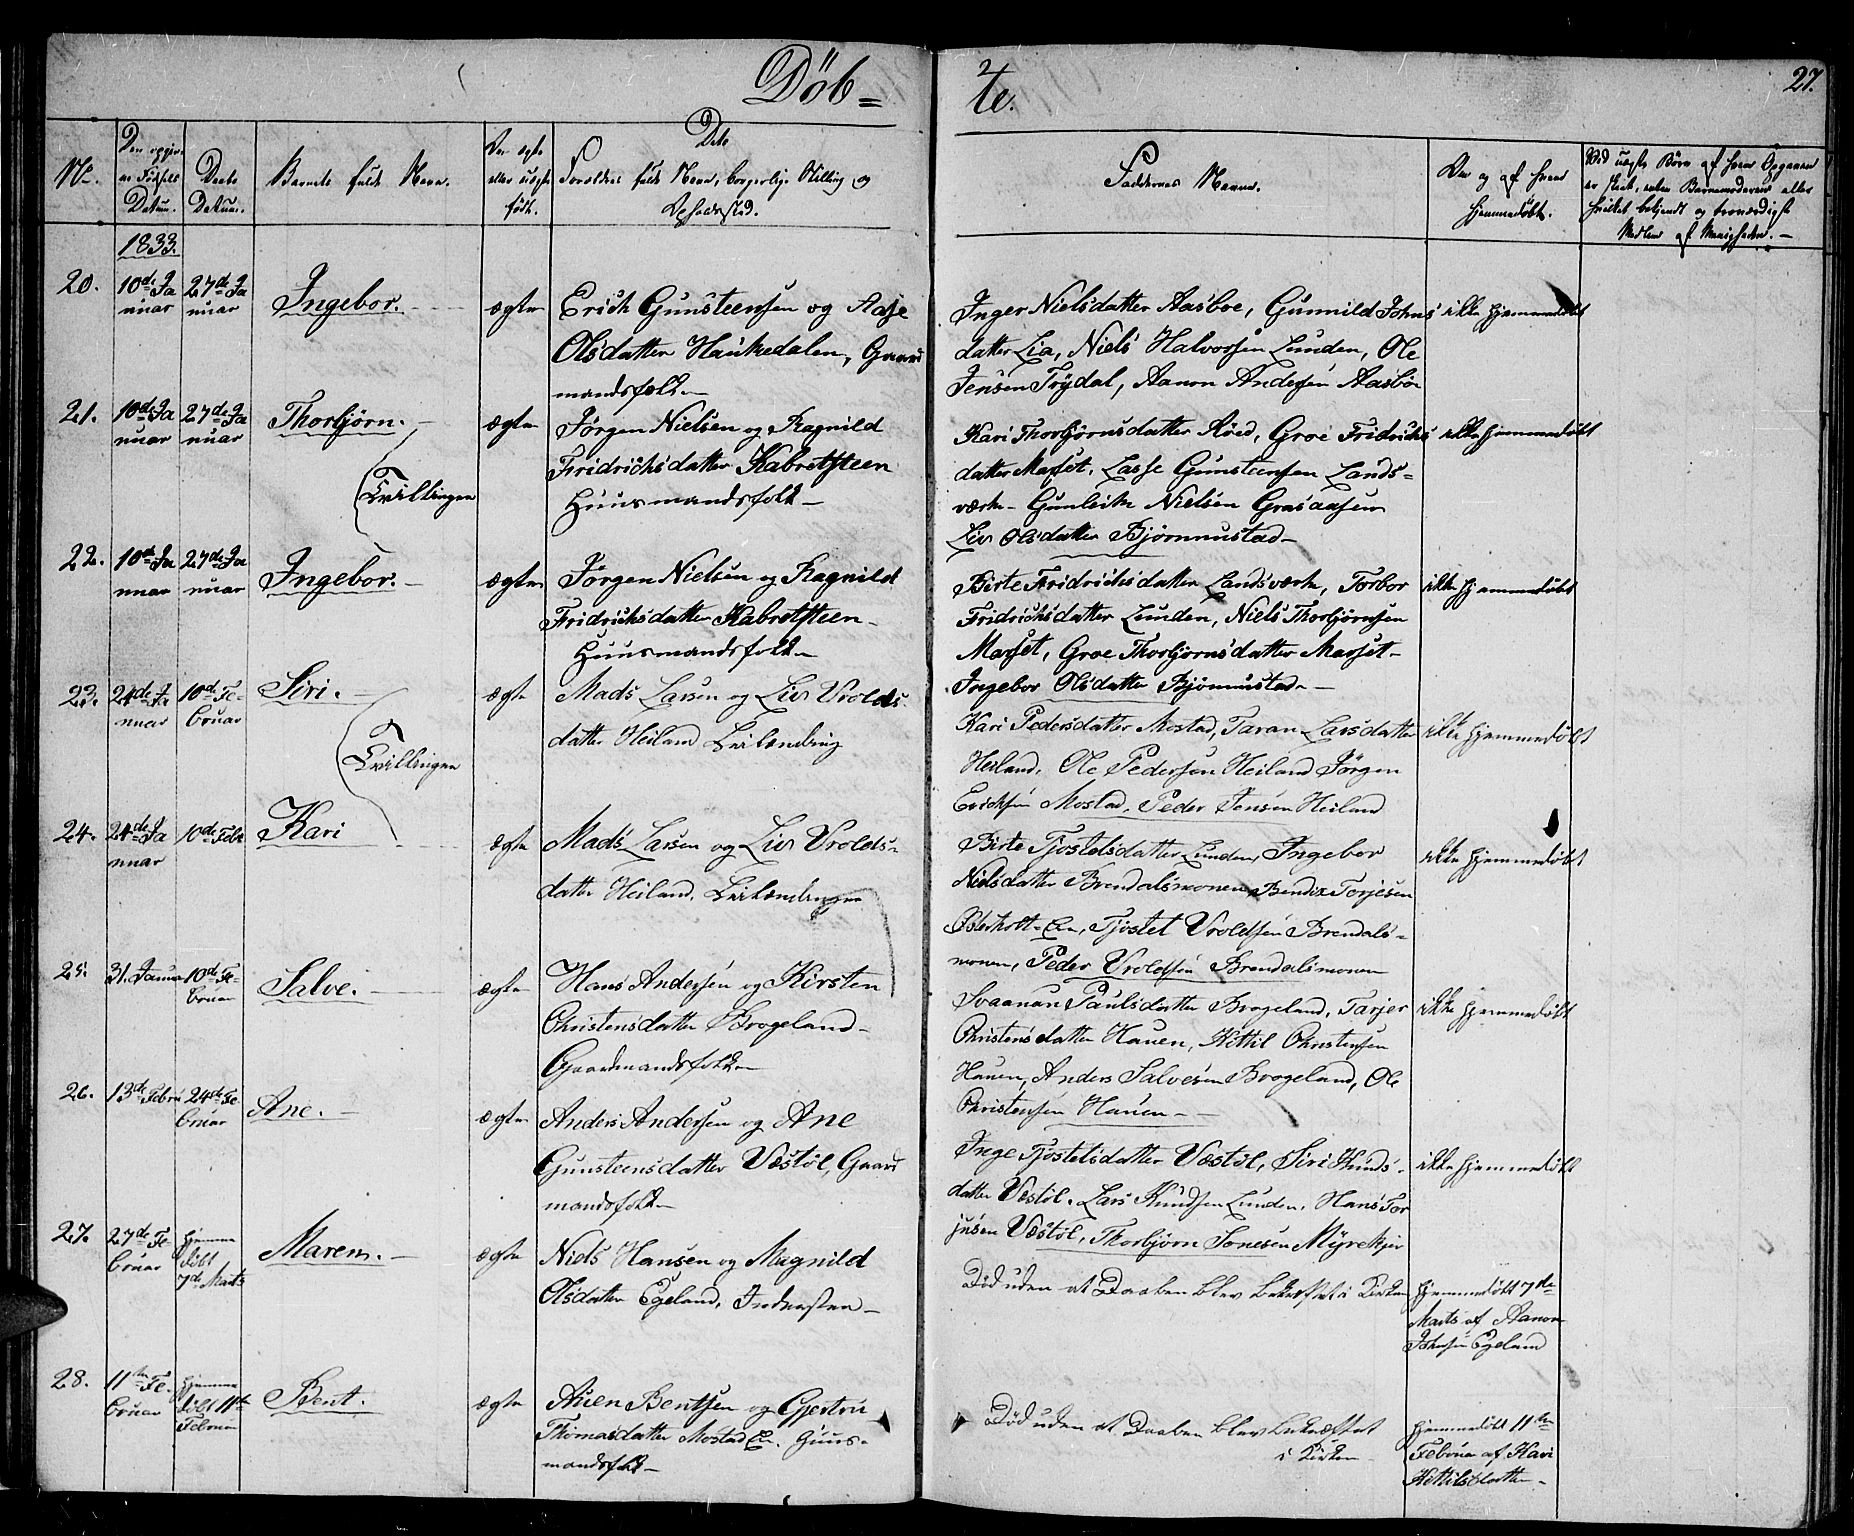 Döb=
te.
27.
No.
Den opgivne Födsels Datum.
Daabs Datum.
Barnets fulde Navn.
Om ægte eller uægte födt.
Dets Forældres fulde Navn, borgerlige Stilling og Opholdssted.
Faddernes Navne.
Om og af hvem hjemmedöbt.
Ved uægte Börn af hvem Opgaven er skeet, enten Barnemoderen eller hvilket bekjendt og troværdigt Medlem af Menigheden.—
1833.
20.
10de Ja
nuar
27de Ja
nuar
Ingebor.
ægte
Erich Gunsteensen og Aasje
Olsdatter Haukedalen, Gaard
mandsfolk—
Inger Nielsdatter Aasboe, Gunnild Johns
datter Lia, Niels Halvorsen Lunden, Ole
Jensen Trydal, Aanon Andersen Aasböe
ikke hjemmedöbt
21.
10de Ja
nuar
27de Ja
nuar
Thorbjørn.—
Tvillinger
ægte
Jørgen Nielsen og Ragnild
Fridrichsdatter Kabretsteen
Huusmandsfolk—
Kari Thorbjørnsdatter Röed, Groe Fridrichs
datter Maset, Lasse Gunsteensen Lands=
værk— Gunleik Nielsen Grasaasen
Liv Olsdatter Bjørnnustad—
ikke hjemmedöbt
22.
10de Ja
nuar
27de Ja
nuar
Ingebor.—
ægte
Jørgen Nielsen og Ragnild
Fridrichsdatter Kabretsteen—
Huusmandsfolk—
Birte Fridrichsdatter Landsværk, Torbor
Fridrichsdatter Lunden, Niels Thorbjørnsen
Masset, Groe Thorbjørnsdatter Masset—
Ingebor Olsdatter Bjönnustad—
ikke hjemmedöbt
23.
24de Ja
nuar
10de Fe-
bruar
Siri.—
Tvillinger
ægte
Mads Larsen og Liv Vrolds
datter Heiland
Kari Pedersdatter Mostad, Taran Larsdatter
Heiland, Ole Pedersen Heiland Jörgen
Erichsen Mostad, Peder Jensen Heiland
ikke hjemmedöbt
24.
24de Ja
nuar
10de Febr
Kari
ægte
Mads Larsen og Liv Vrolds-
datter Heiland.
Birte Tjostelsdatter Lunden, Ingebor
Nielsdatter Brendalsmonen, Bendix Torjesen
Östeholt-Em, Tjöstel Vroldsen Brendals-
monen, Peder Vroldsen Brendalsmonen
ikke hjemmedöbt
25.
31. Januar
10de Fe-
bruar
Salve.—
ægte
Hans Andersen og Kirsten
Christensdatter Brogeland—
Gaardmandsfolk—
Svaanau Paulsdatter Brogeland, Tarjer
Christensdatter Hauen, Kittil Christensen
Hauen, Anders Salvesen Brogeland, Ole
Christensen Hauen—
ikke hjemmedöbt
26.
13de Febru
24de Fe
bruar
Ane.—
ægte
Anders Andersen og Ane
Gunsteensdatter Vestöl, Gaard
mandsfolk—
Inge Tjöstelsdatter Vestöl, Siri Knuds-
datter Vestöl, Lars Knudsen Lunden, Hans Tor
jusen Vestöl, Thorbjørn Jonesen Myrekjer
ikke hjemmedöbt
27.
27de Fe
bruar
hjemme
döbt
7de Marts
Maren.—
ægte
Niels Hansen og Magnild
Olsdatter Egeland, Inderster—
Död uden at Daaben blev bekræftet i Kirken
hjemmedöbt 7de
Marts af Aanon
Johnsen Egeland
28.
11te Fe-
bruar
hjemme
döbt 11te
Februar
Bent.
ægte
Auen Bentsen og Gjertru
Thomasdatter Mostad Em. Huus-
mandsfolk—
Död uden at Daaben blev bekræftet
i Kirken—
hjemmedöbt 11te
Februar af Kari
Kettilsdatter—